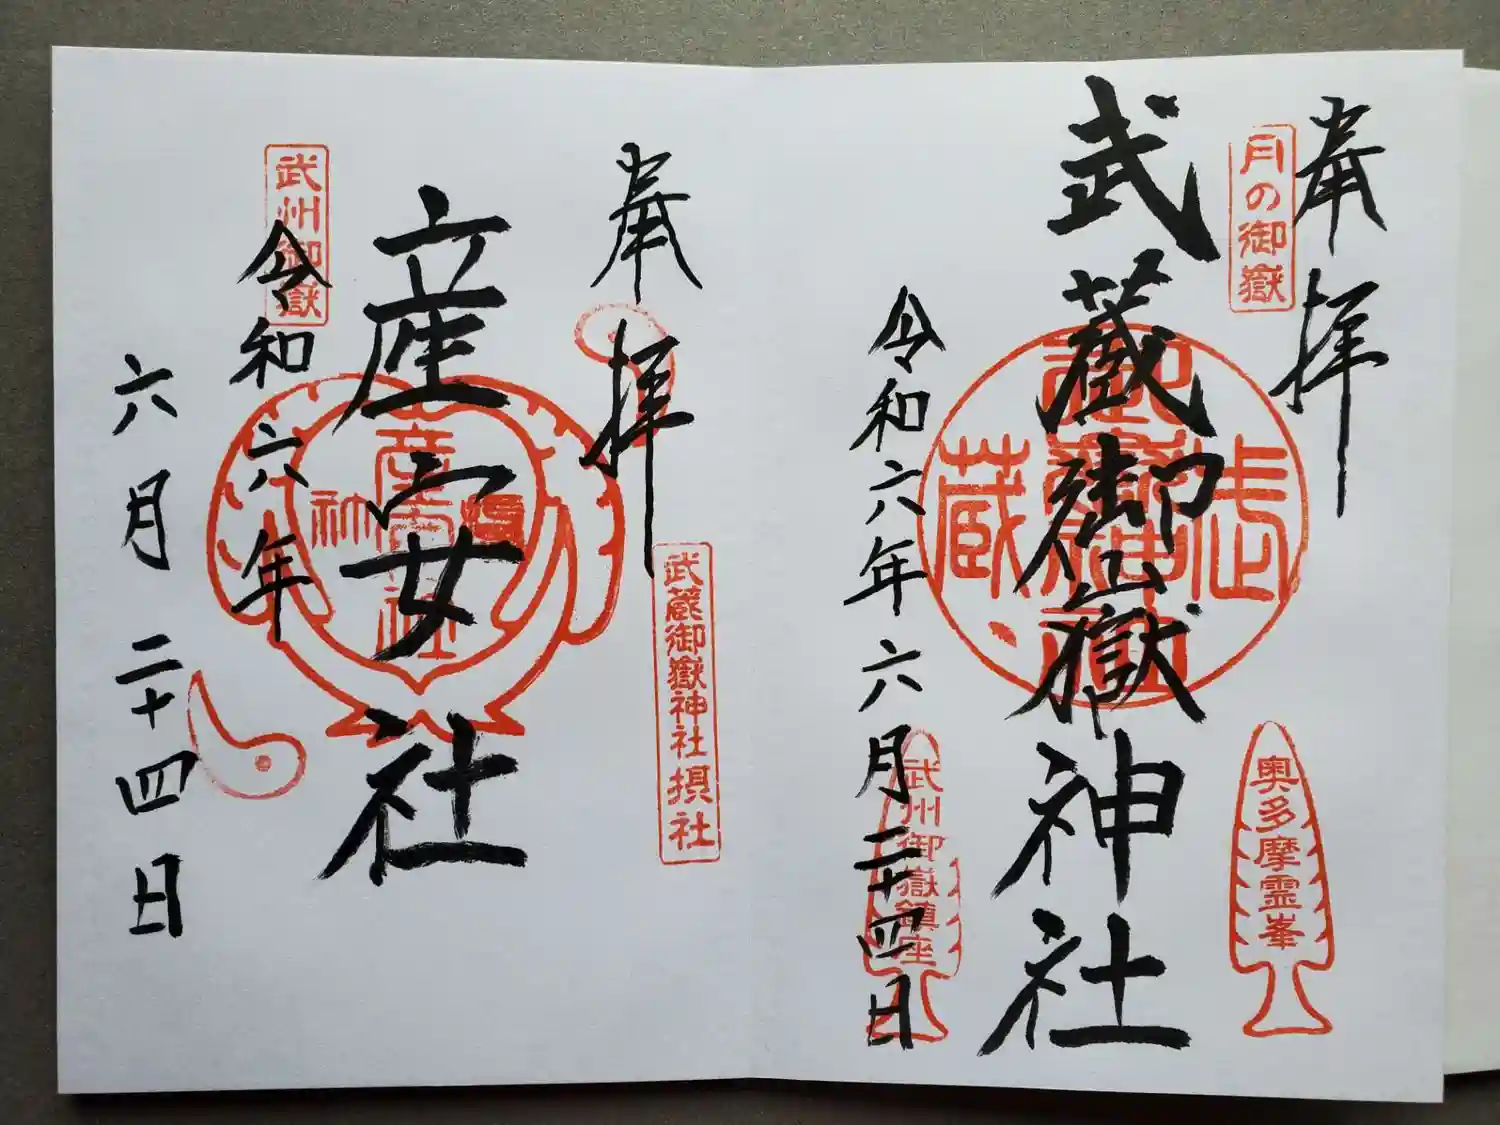 奉拝
月の御嶽
武蔵御嶽神社
武蔵
奥多摩霊峯
令和六年六月二十四日
武州御嶽鎮座
奉拝
武蔵御嶽神社摂社
産安社
令和六年
六月二十四日
武州御嶽